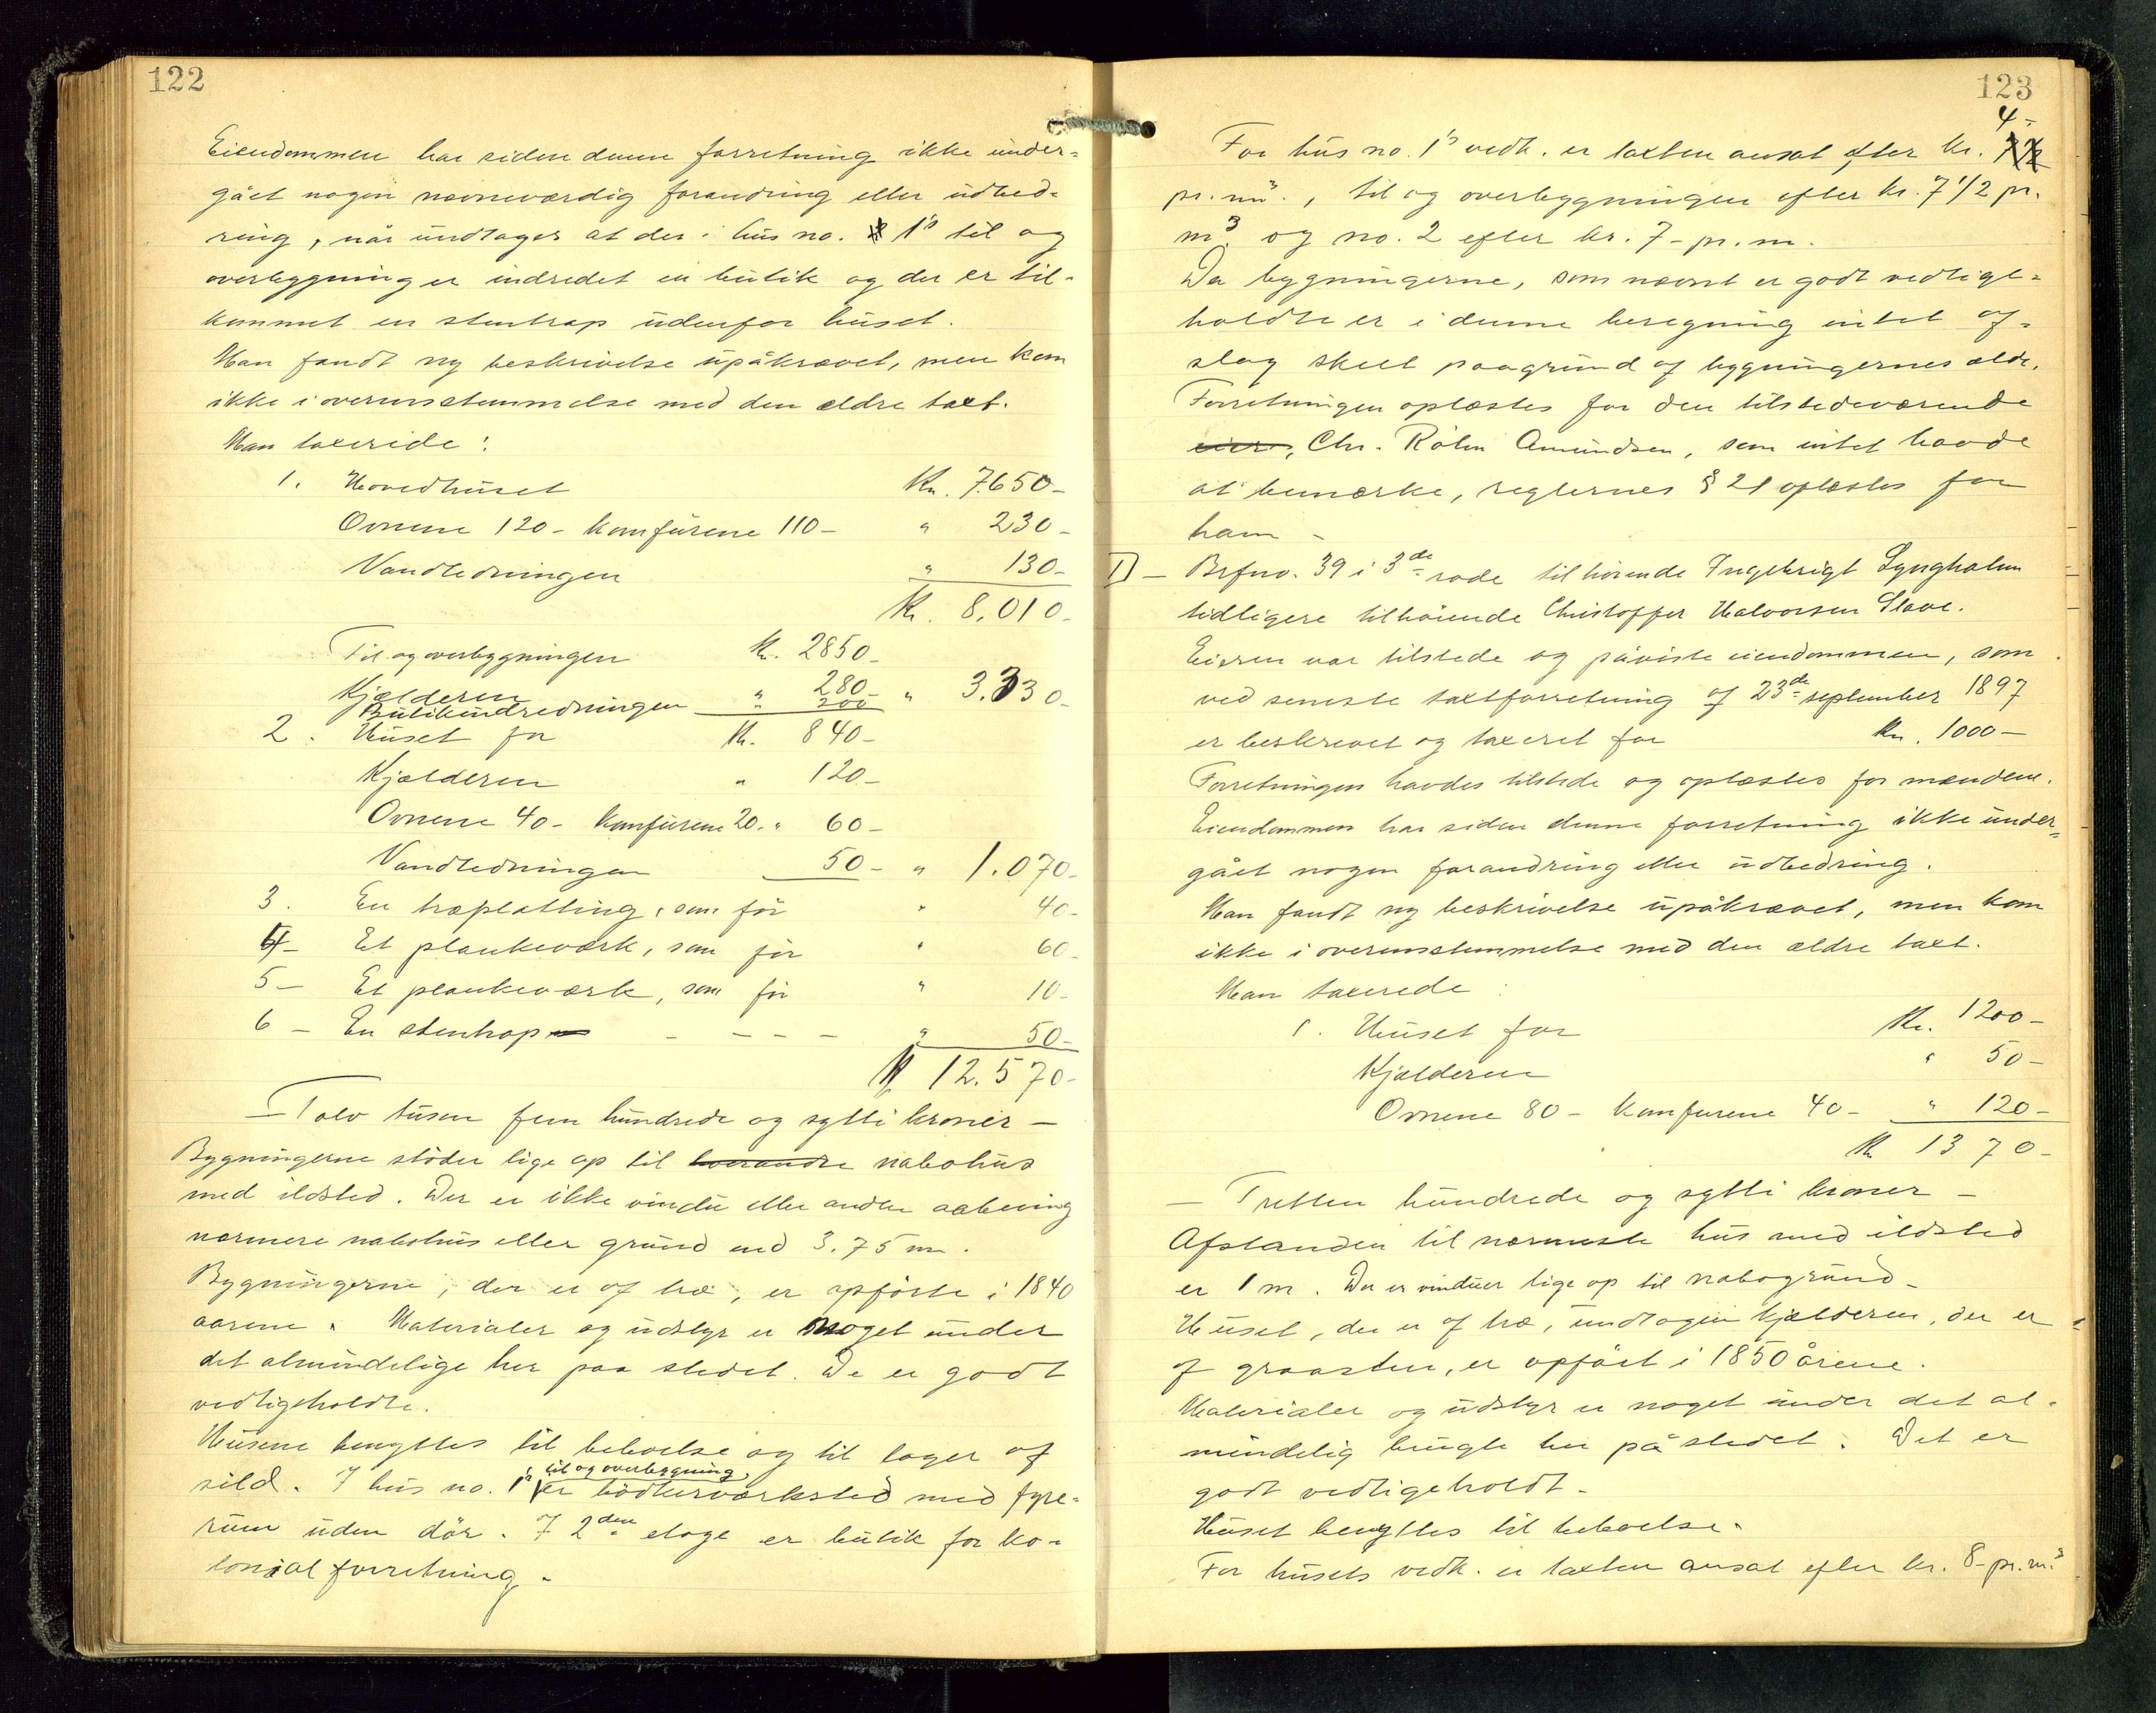 122
Eiendommen har siden denne forretning ikke under-
gået nogen nævneværdig forandring eller udbed-
ring, når undtages at der i hus no. 1's til og
overbygning er indredet en butik og der er til-
kommet en stentrap udenfor huset.
Man fandt ny beskrivelse upåkrævet, men kom
ikke i overensstemmelse med den ældre taxt.
Man taxerede:
1. Hovedhuset Kr. 7650-
Ovnene 120- komfurene 110- " 230-
Vandledningen " 130-
Kr. 8.010-
Til og overbygningen Kr. 2850-
Kjælderen " 280- " 3.330-
Butikindredningen " 200
2. Huset for Kr. 840-
Kjælderen " 120-
Ovnene 40- komfurene 20- " 60-
Vandledningen 50- " 1.070-
3. En træplatting, som før " 40-
4- Et plankeværk, som før " 60-
5- Et plankeværk, som før " 10-
6- En stentrap - - - - " 50-
Kr 12.570-
- Tolv tusen fem hundrede og sytti kroner -
Bygningerne støder lige op til hverandre nabohus
med ildsted. Der er ikke vindu eller anden aabning
nærmere nabohus eller grund end 3.75 m.
Bygningerne, der er af træ, er opførte i 1840
aarene. Materialer og udstyr er noget under
det almindelige her paa stedet. De er godt
vedligeholdte.
Husene benyttes til beboelse og til lager af
til og overbygning
sild. I hus no. 1's er bødkerværksted med fyre-
rum uden dør. I 2den etage er butik for ko-
lonialforretning.
123
4-
For hus no. 1's vedk. er taxten ansat efter kr. 7 1/2
pr. m³., til og overbygningen efter kr. 7 1/2 pr.
m³ og no. 2 efter kr. 7- pr. m.
Da bygningerne, som nævnt er godt vedlige-
holdte er i denne beregning intet af-
slag skeet paagrund af bygningernes ælde.
Forretningen oplæstes for den tilstedeværende
eier, Chr. Røhn Amundsen, som intet havde
at bemærke, reglernes § 21 oplæstes for
ham -
I) - Brfno. 39 i 3de rode tilhørende Ingebrigt Lyngholm
tidligere tilhørende Christoffer Halvorsen Slave.
Eieren var tilstede og påviste eiendommen, som
ved seneste taxtforretning af 23de september 1897
er beskrevet og taxeret for Kr. 1000-
Forretningen havdes tilstede og oplæstes for mændene.
Eiendommen har siden denne forretning ikke under-
gået nogen forandring eller udbedring.
Man fandt ny beskrivelse upåkrævet, men kom
ikke i overensstemmelse med den ældre taxt.
Man taxerede:
1. Huset for Kr. 1200-
Kjælderen " 50-
Ovnene 80- Komfurene 40- " 120-
Kr 1370-
- Tretten hundrede og sytti kroner -
Afstanden til nærmeste hus med ildsted
er 1 m. Der er vinduer lige op til nabogrund-
Huset, der er af træ, undtagen kjælderen, der er
af graasten, er opført i 1850 årene.
Materialer og udstyr er noget under det al-
mindelig brugte her på stedet. Det er
godt vedligeholdt-
Huset benyttes til beboelse.
For husets vedk. er taxten ansat efter kr. 8- pr. m³